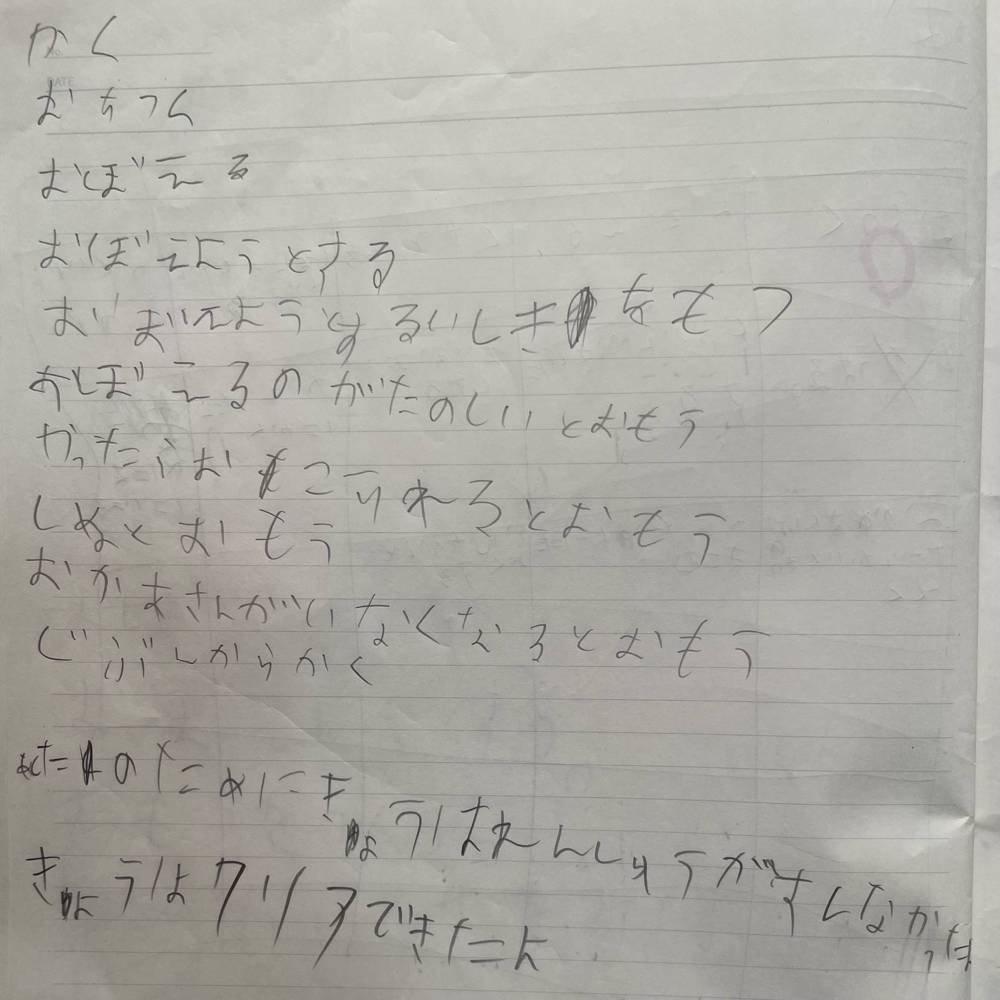 かく
おちつく
おとぼえる
おぼえようとする
おぼえようとするいしきをもつ
おぼえるのがたのしいとおもう
かったらおこられるとおもう
しぬとおもう
おかあさんがいなくなるとおもう
じぶしからかく
あしたのためにき
ょうはれんしゅうがすくなかった
きょうはクリアできたよ